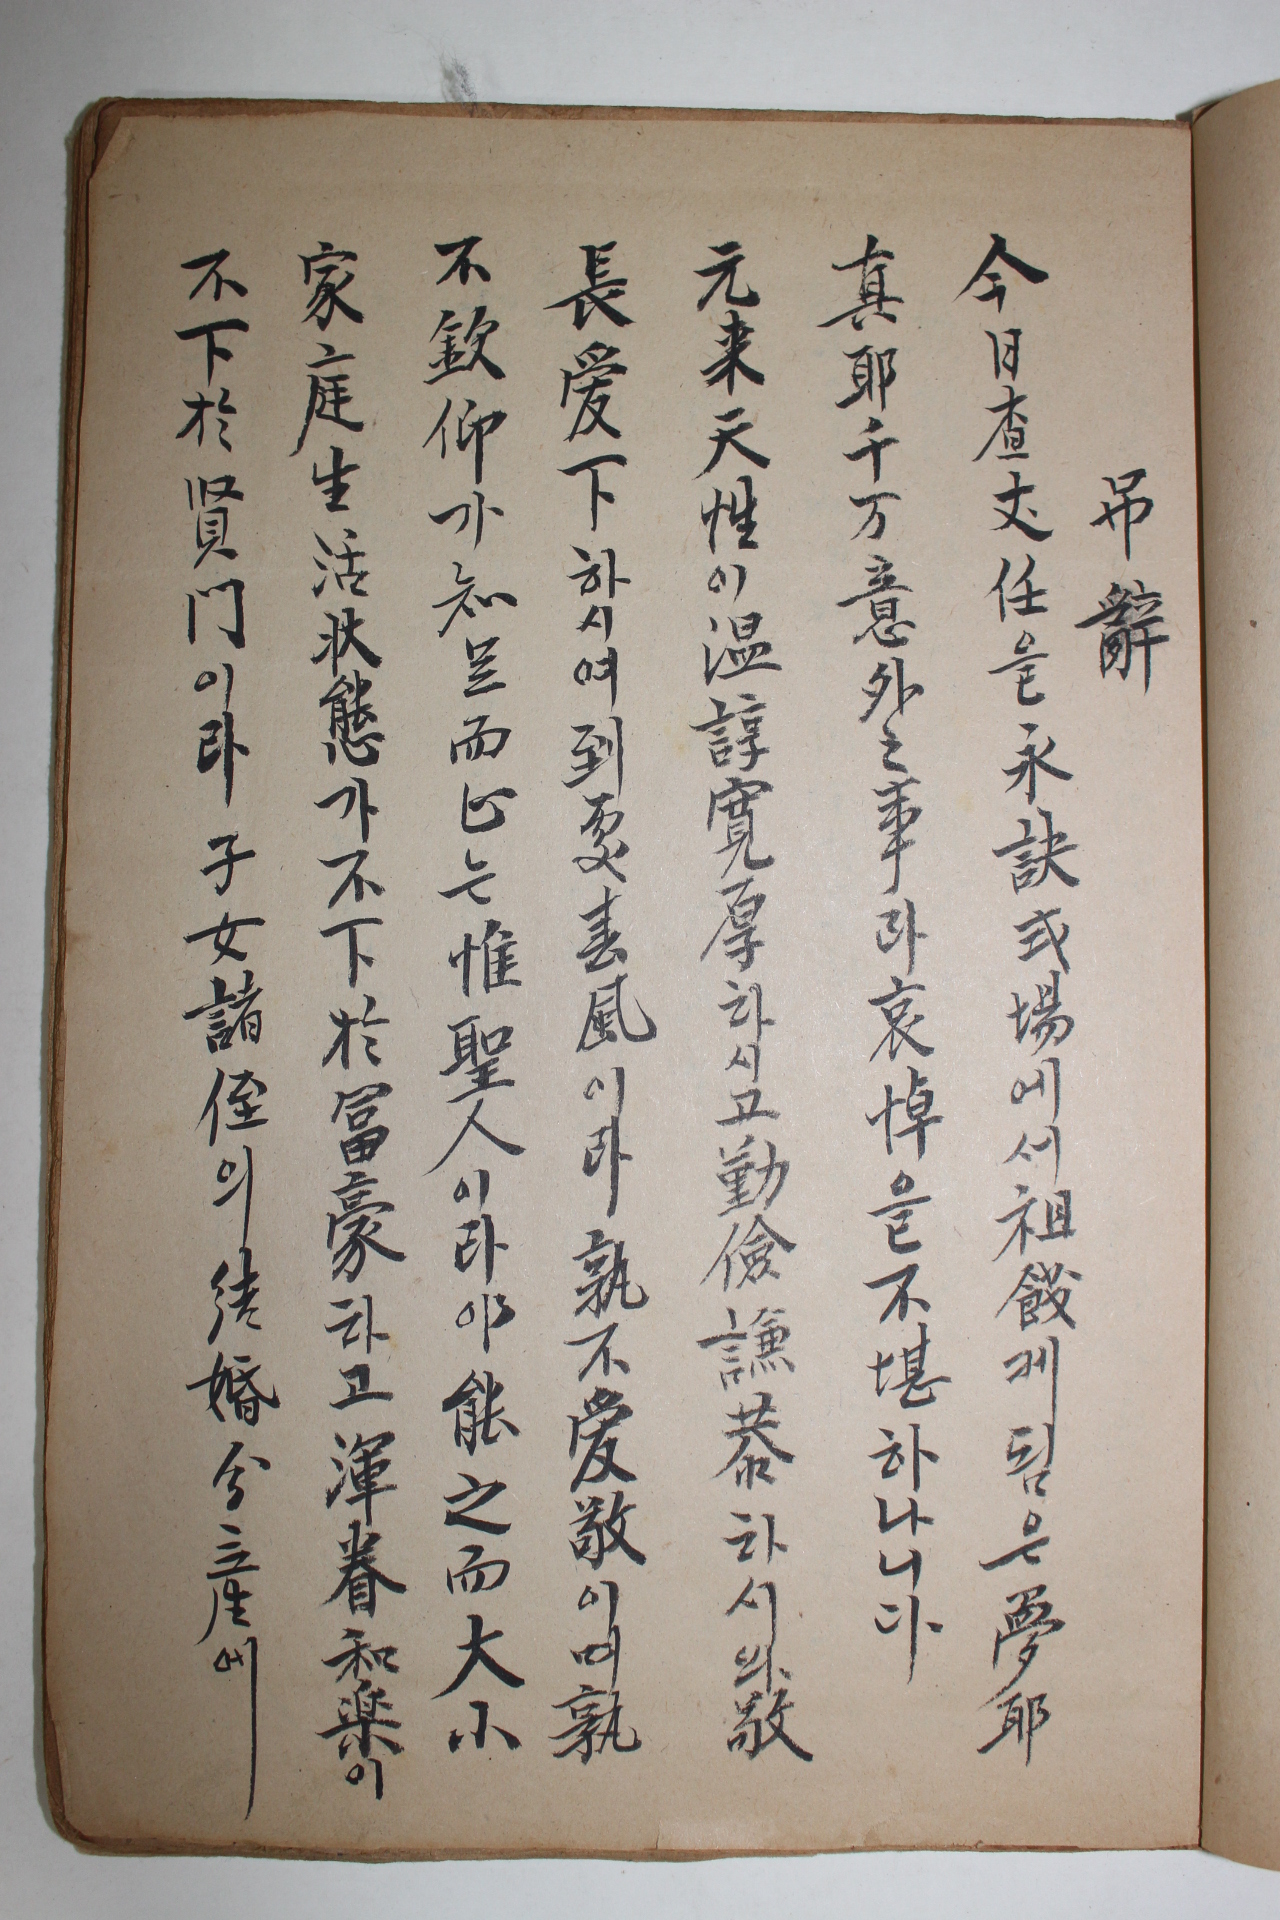 吊辭
今日査丈任을永訣式場에서祖餞케됨은夢耶
真耶千万意外之事라哀悼을不堪하나니다
元来天性이温諄寛厚하시고勤儉謙恭하시며敬
長愛下하시며到處春風이라孰不愛敬이며孰
不欽仰가知足而止는惟聖人이라야能之而大小
家庭生活状態가不下於冨豪하고渾眷和楽이
不下於賢門이라子女諸侄의結婚分産에